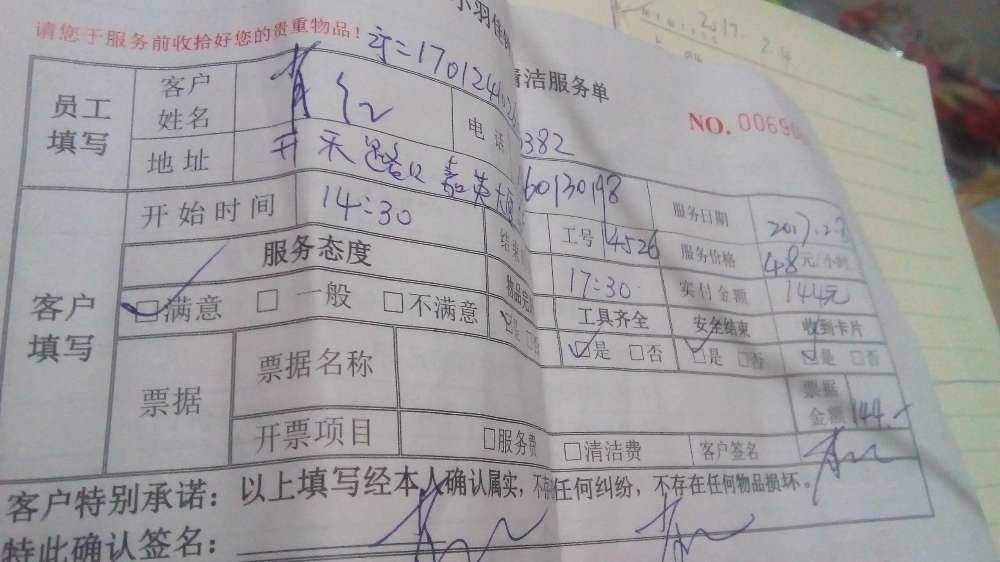 小羽佳
请您于服务前收拾好您的贵重物品！
清洁服务单
NO. 0069
2017. 2.4
员工填写
客户姓名
电话
382
地址
开禾路口 嘉英大
60130198
服务日期 2017.2.8
开始时间 14:30
结束
工号 4526
服务价格 48元/小时
客户填写
服务态度
17:30
实付金额 144元
物品完
工具齐全
安全结束
收到卡片
□满意 □一般 □不满意
□是 □否
□是 □否
□是 □否
□是 □否
票据
票据名称
票据金额 144.-
开票项目
□服务费
□清洁费
客户签名
客户特别承诺：以上填写经本人确认属实，不存任何纠纷，不存在任何物品损坏。
特此确认签名：